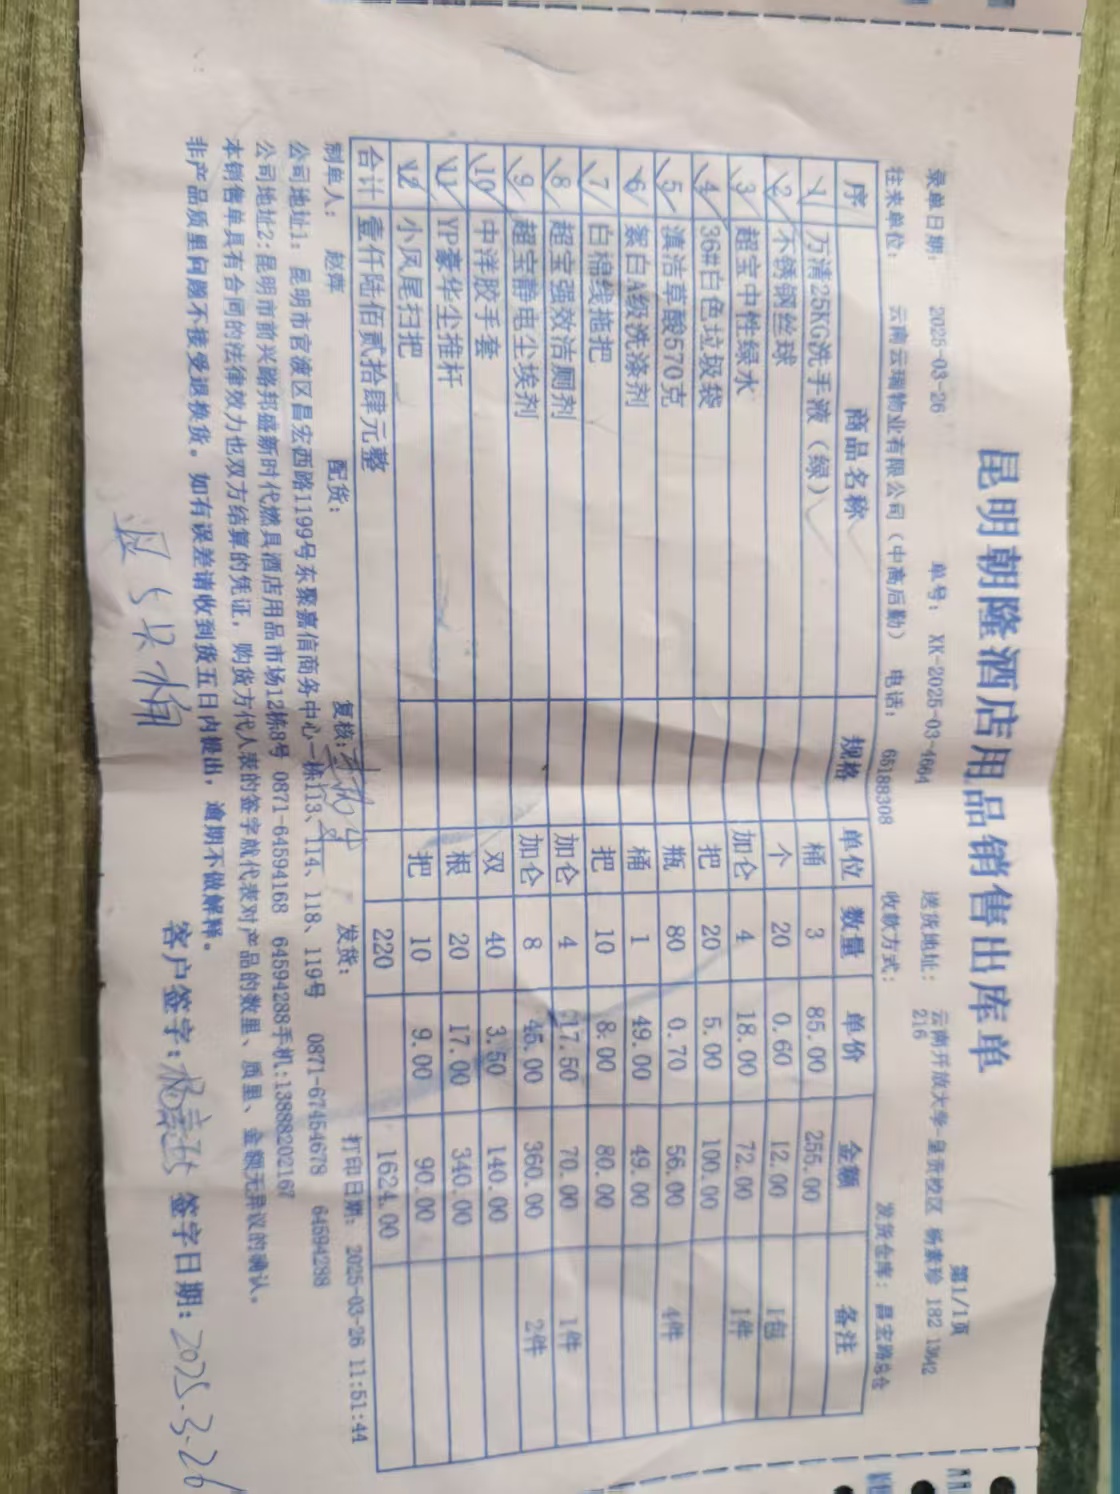 昆明朝隆酒店用品销售出库单
第1/1页
录单日期: 2025-03-26 单号: XK-2025-03-4684 送货地址: 云南开放大学 呈贡校区 杨素珍 182 13842 216
往来单位: 云南云瑞物业有限公司(中高后勤) 电话: 65188308 收款方式: 发货仓库: 昌宏路总仓
序 商品名称 规格 单位 数量 单价 金额 备注
1 万清25KG洗手液(绿) 桶 3 85.00 255.00
2 不锈钢丝球 个 20 0.60 12.00 1包
3 超宝中性绿水 加仑 4 18.00 72.00 1件
4 36#白色垃圾袋 把 20 5.00 100.00
5 滇洁草酸570克 瓶 80 0.70 56.00 4件
6 絮白A级洗涤剂 桶 1 49.00 49.00
7 白棉线拖把 把 10 8.00 80.00
8 超宝强效洁厕剂 加仑 4 17.50 70.00 1件
9 超宝静电尘埃剂 加仑 8 45.00 360.00 2件
10 中洋胶手套 双 40 3.50 140.00
11 YP豪华尘推杆 根 20 17.00 340.00
12 小凤尾扫把 把 10 9.00 90.00
合计 壹仟陆佰贰拾肆元整 220 1624.00
制单人: 赵萍 配货: 复核: 发货: 打印日期: 2025-03-26 11:51:44
公司地址1: 昆明市官渡区昌宏西路1199号东聚嘉信商务中心一栋113、114、118、119号 0871-67454678 64594288
公司地址2:昆明市前兴路邦盛新时代燃具酒店用品市场12栋8号 0871-64594168 64594288手机:13888202167
本销售单具有合同的法律效力也双方结算的凭证, 购货方代人表的签字就代表对产品的数里、质里、金额无异议的确认。
非产品质里问题不接受退换货。如有误差请收到货五日内提出, 逾期不做解释。
客户签字: 签字日期: 2025.3.26